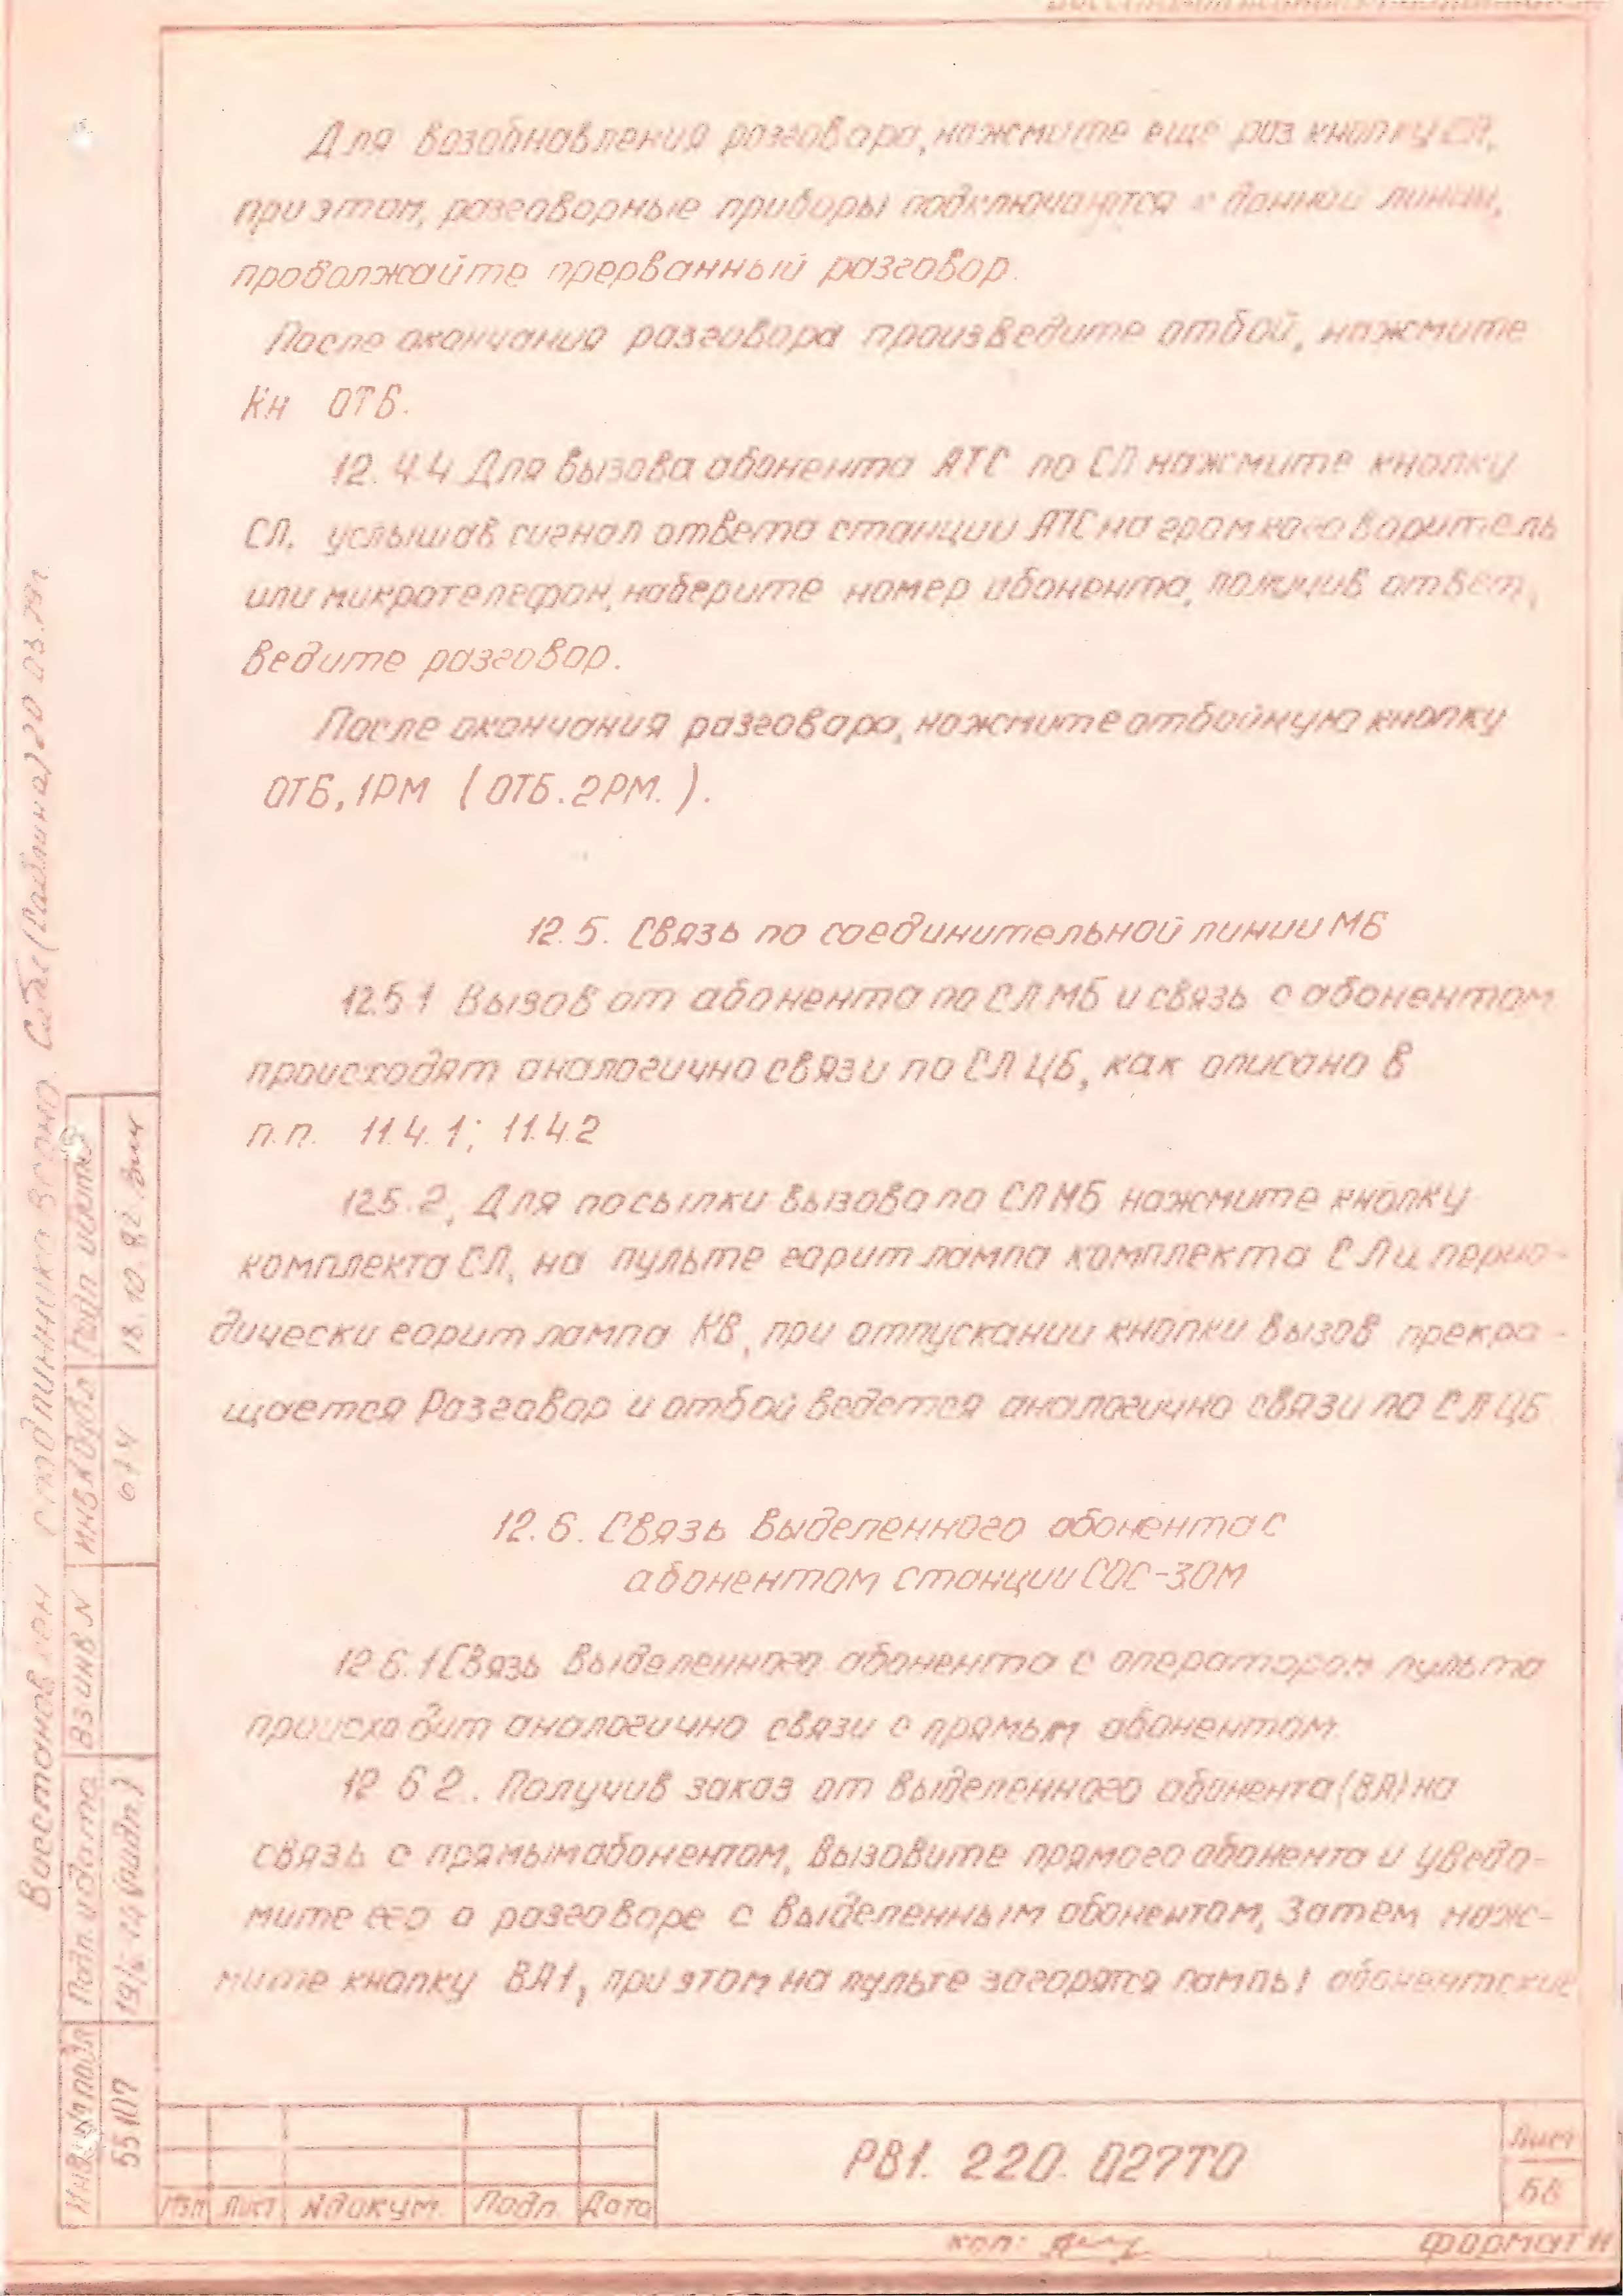 Для возобновления разговора, нажмите еще раз кнопку СЛ,
при этом, разговорные приборы подключаются к данной линии,
продолжайте прерванный разговор.
После окончания разговора произведите отбой, нажмите
Кн ОТБ.
12.4.4 Для вызова абонента АТС по СЛ нажмите кнопку
СЛ, услышав сигнал ответа станции АТС на громкоговоритель
или микротелефон, наберите номер абонента, получив ответ,
ведите разговор.
После окончания разговора, нажмите отбойную кнопку
ОТБ, 1РМ (ОТБ. 2РМ.).
12.5. Связь по соединительной линии МБ
12.5.1 Вызов от абонента по СЛ МБ и связь с абонентом
происходят аналогично связи по СЛ ЦБ, как описано в
п.п. 11.4.1; 11.4.2
12.5.2, Для посылки вызова по СЛ МБ нажмите кнопку
комплекта СЛ, на пульте горит лампа комплекта СЛ и перио-
дически горит лампа КВ, при отпускании кнопки вызов прекра-
щается Разговор и отбой ведется аналогично связи по СЛ ЦБ
12.6. Связь выделенного абонента с
абонентом станции СОС-30М
12.6.1 Связь выделенного абонента с оператором пульта
происходит аналогично связи с прямым абонентом.
12.6.2. Получив заказ от выделенного абонента (ВА) на
связь с прямым абонентом, вызовите прямого абонента и уведо-
мите его о разговоре с выделенным абонентом, Затем наж-
мите кнопку ВА1, при этом на пульте загорятся лампы абонентские
РВ1. 220. 027ТО
Лист
Изм Лист № докум. Подп. Дата
коп:
Формат
Восстановлен с подлинника
Инв № подл
55107
Подп. и дата
Вз инв №
Инв № дубл
Подп и дата
18.10.82